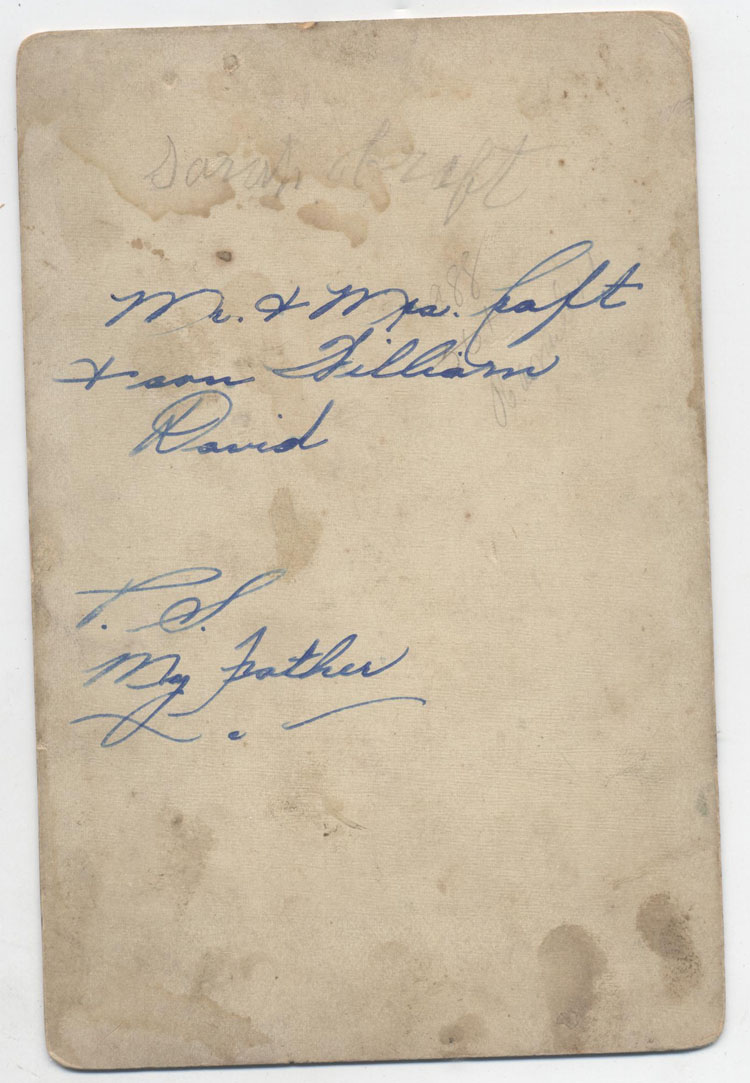 Sarah Craft
Mr. & Mrs. Craft
& son William
David
P. S.
My Father